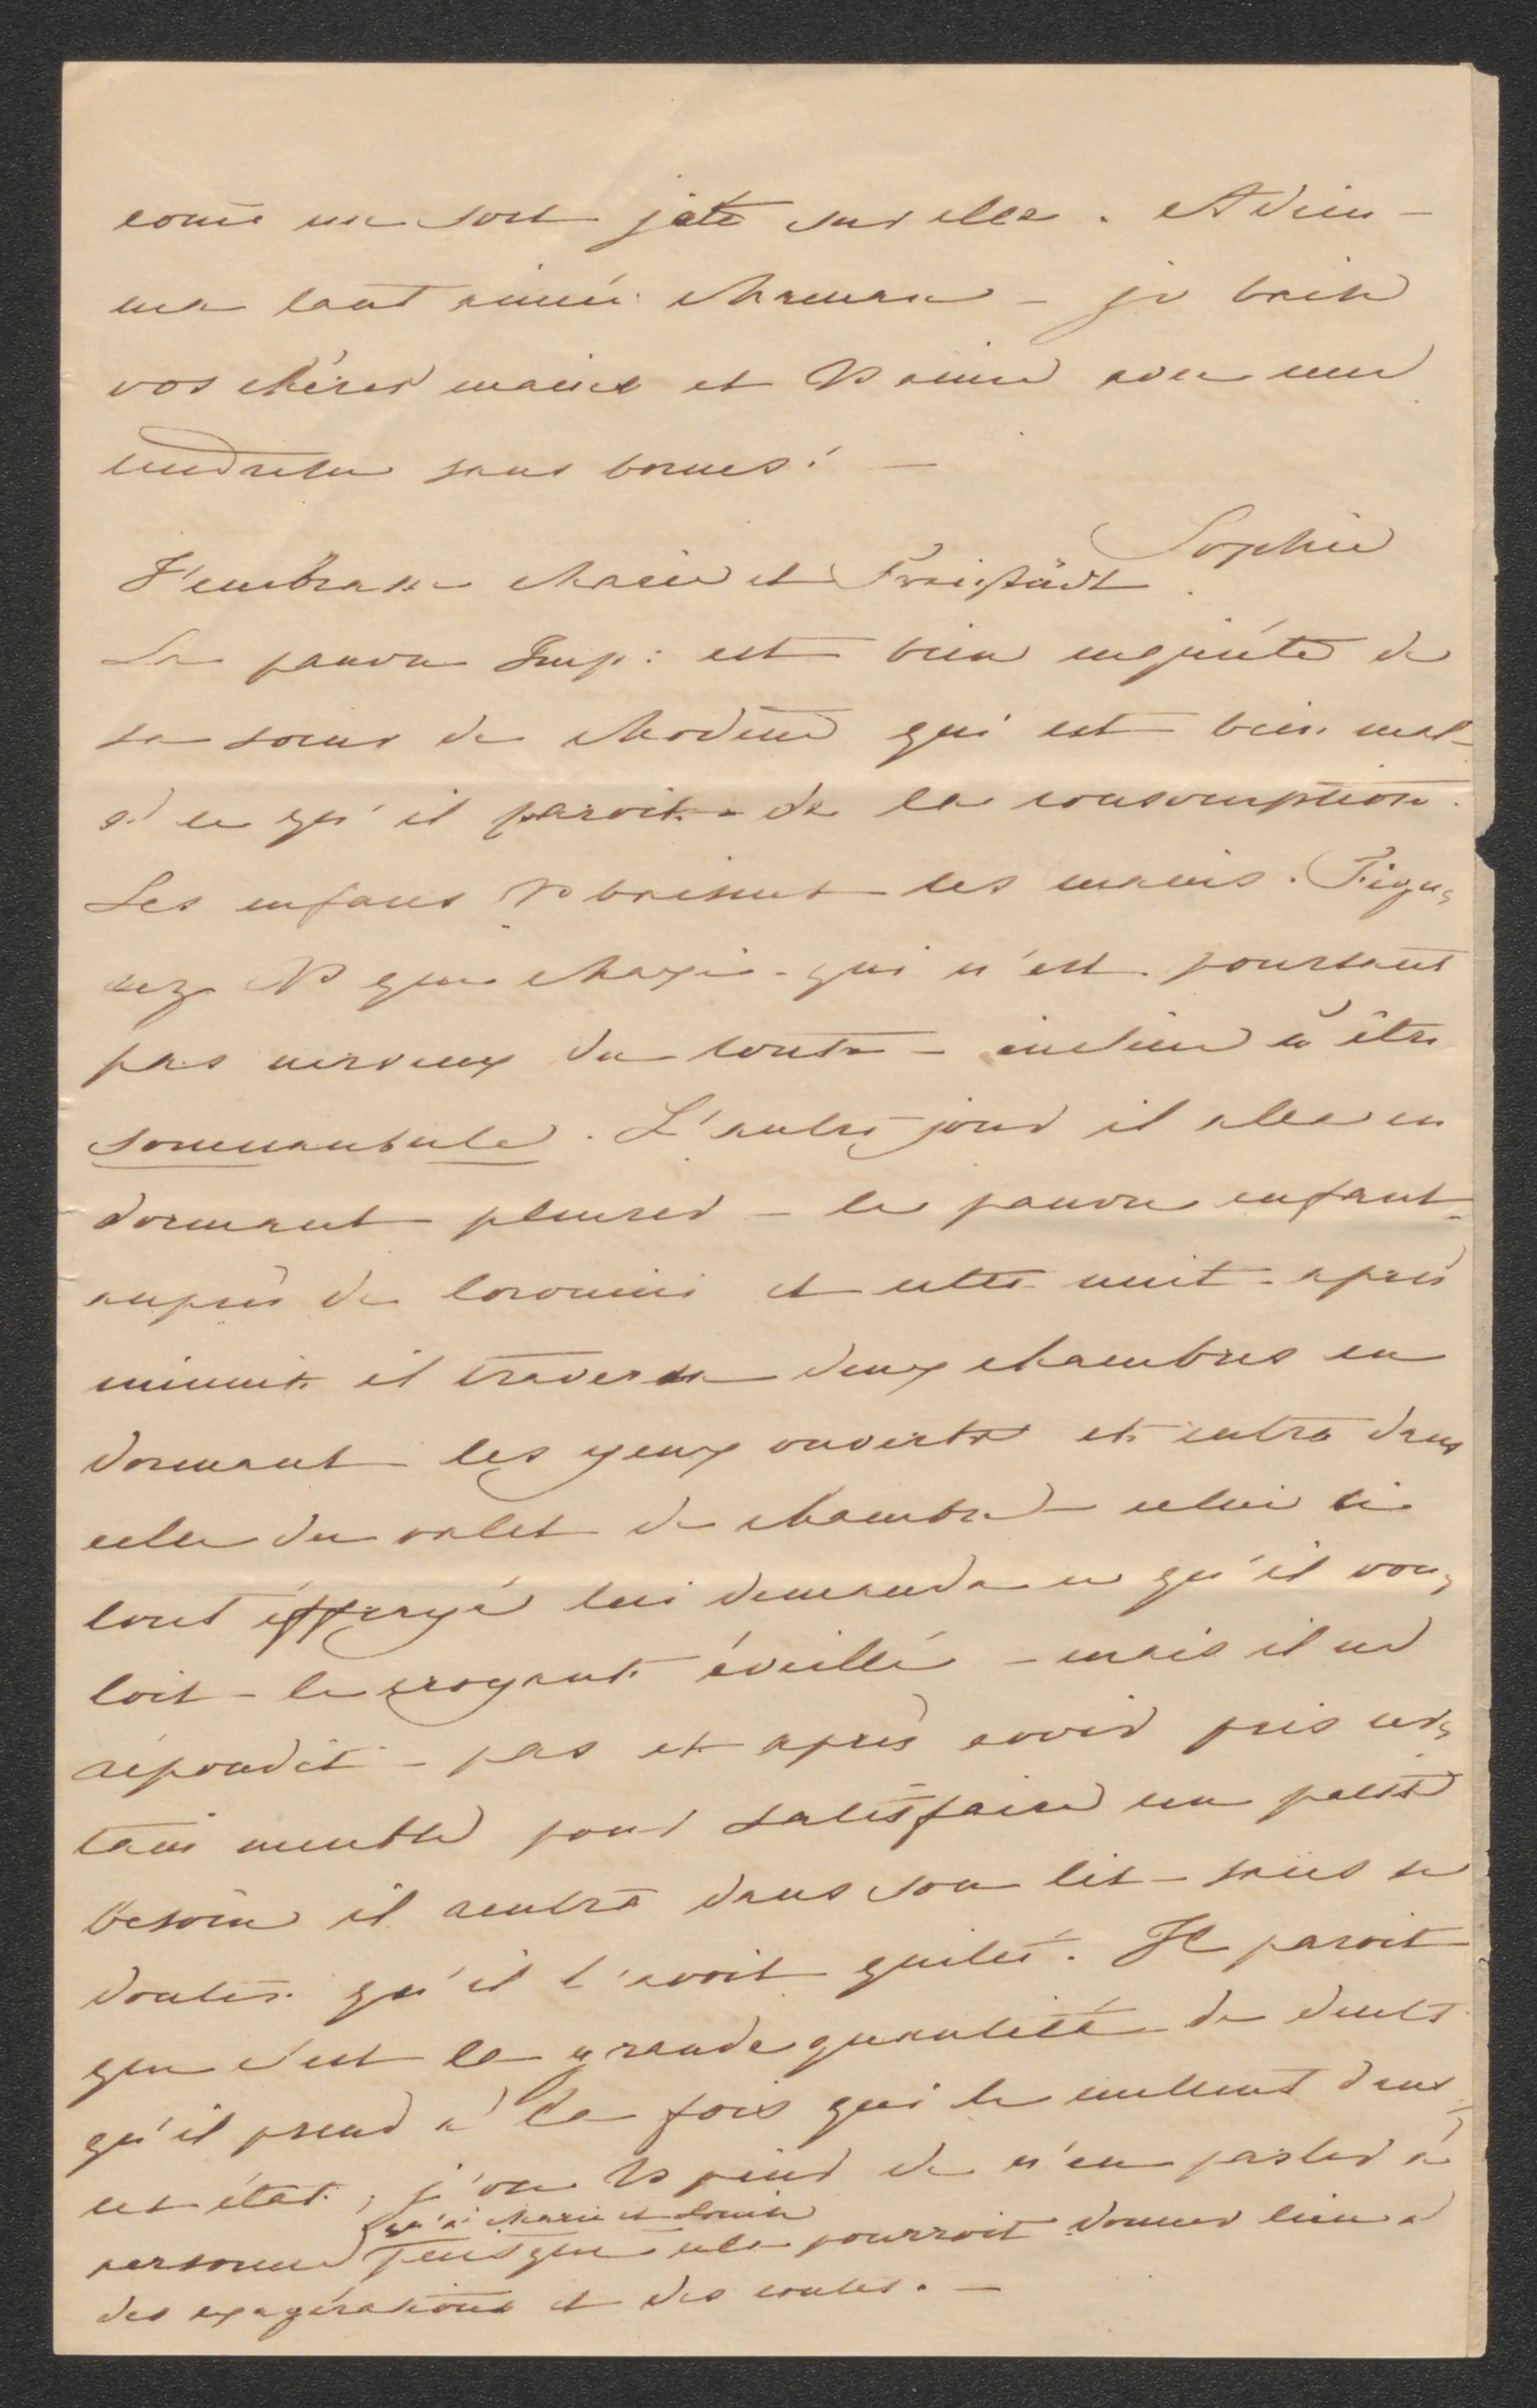 come un sort jeté sur elle. Adieu –
ma tant aimée Maman – je baise
vos chères mains et V aime avec une
tendresse sans bornes! —
Sophie
J'embrasse Marie et Freistädt.
La pauvre Imp: est bien inquiète de
sa soeur de Modène qui est bien mal –
à ce qu'il paroit – de la consomption.
Les enfans V baisent les mains. Figu,
rez V que Maxi – qui n'est pourtant
pas nerveux du tout – incline à être
somnambule. L'autre jour il alla en
dormant pleurer – le pauvre enfant –
auprès de et cette nuit – après
minuit il traversa deux chambres en
dormant les yeux ouverts et entra dans
celle du valet de chambre – celui ci
tout éffrayé lui demanda ce qu'il vou,
loit – le croyant éveillé – mais il ne
répondit – pas et après avoir pris cer,
tain meuble pour satisfaire un petit
besoin il rentra dans son lit – sans se
douter qu'il l'avoit quitté. Il paroit
que c'est la grande quantité de dents
qu'il prend à la fois qui le mettent dans
cet état; j'ose V prier de n'en parler à
qu'à Marie et Louise
personne puisque cela pourroit donner lieu à
des exagérations et des contes. —